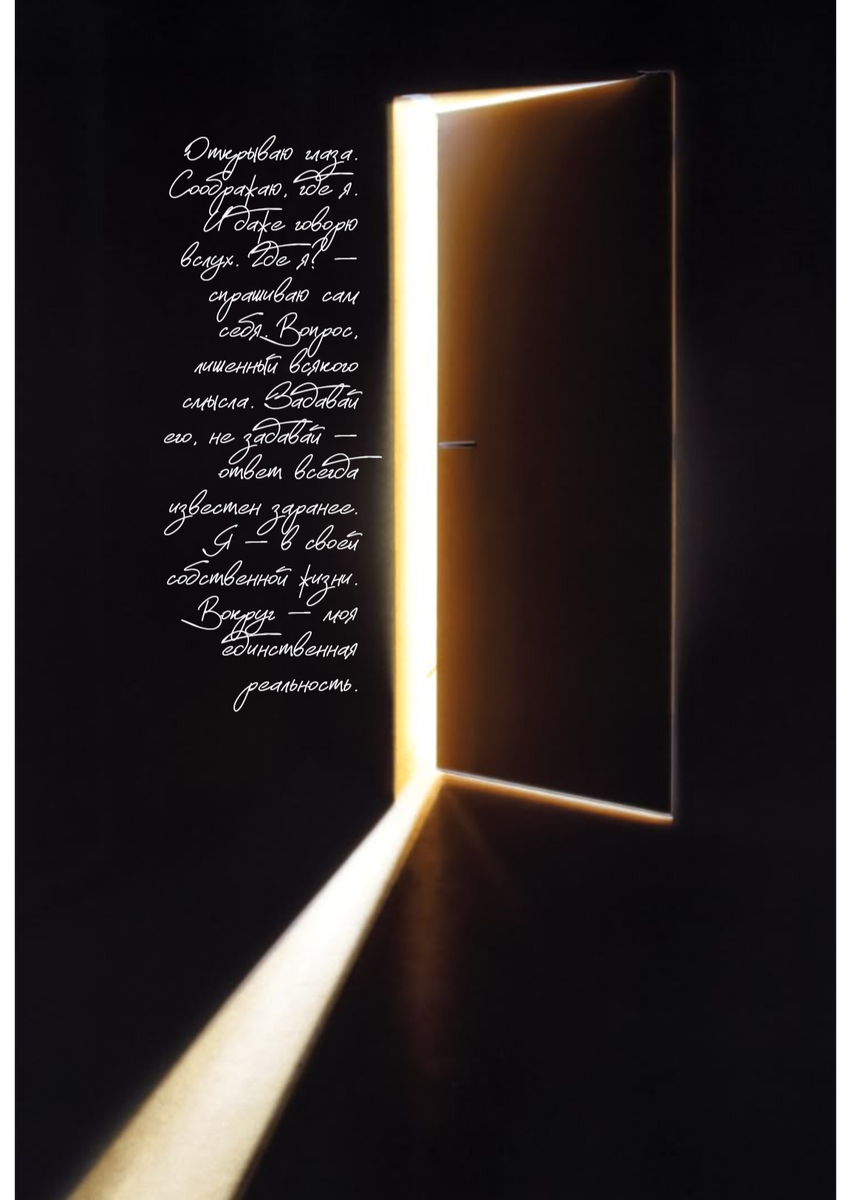 Открываю глаза.
Соображаю, где я.
И даже говорю
вслух. Где я? —
спрашиваю сам
себя. Вопрос,
лишенный всякого
смысла. Задавай
его, не задавай —
ответ всегда
известен заранее.
Я — в своей
собственной жизни.
Вокруг — моя
единственная
реальность.